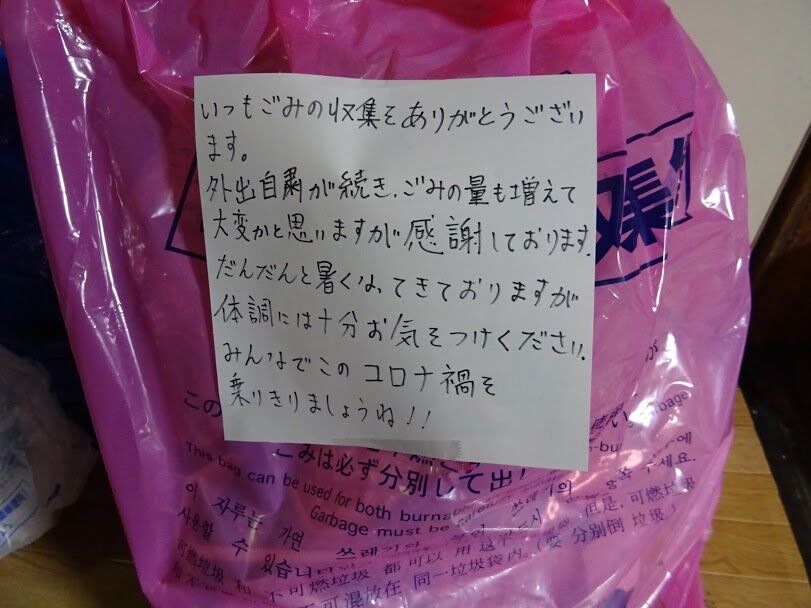 いつもごみの収集をありがとうござい
ます。
外出自粛が続き、ごみの量も増えて
大変かと思いますが感謝しております。
だんだんと暑くなってきておりますが
体調には十分お気をつけください。
みんなでこのコロナ禍を
乗りきりましょうね!!
収集
この
使用
ごみは必ず分別して出
This bag can be used for both burna
Garbage must be
garbage
이 자루는 가연
쓰레기
주세요.
사용할 수 있습니다
但是, 可燃垃圾
可燃垃圾 和 不可燃垃圾 都可以 用 这个
(要 分别倒 垃圾)
不可混放在 同一垃圾袋内。